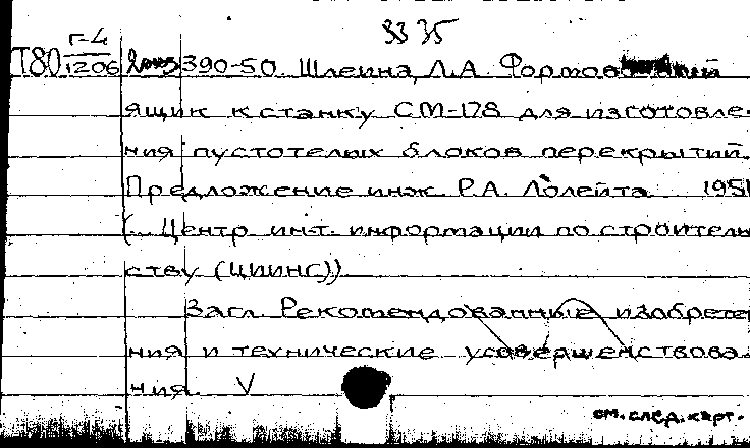 33 35
Т80 Г-4
1206 2 экз 390-50. Шлеина, Л.А. Формовочный
ящик к станку СМ-178 для изготовле-
ния пустотелых блоков перекрытий.
Предложение инж. Р.А. Лолейта 1951
(... Центр. ин-т. информации по строитель-
ству (ЦИИНС))
Загл. Рекомендованные изобрете-
ния и технические усовершенствова-
ния. V
см. след. карт.